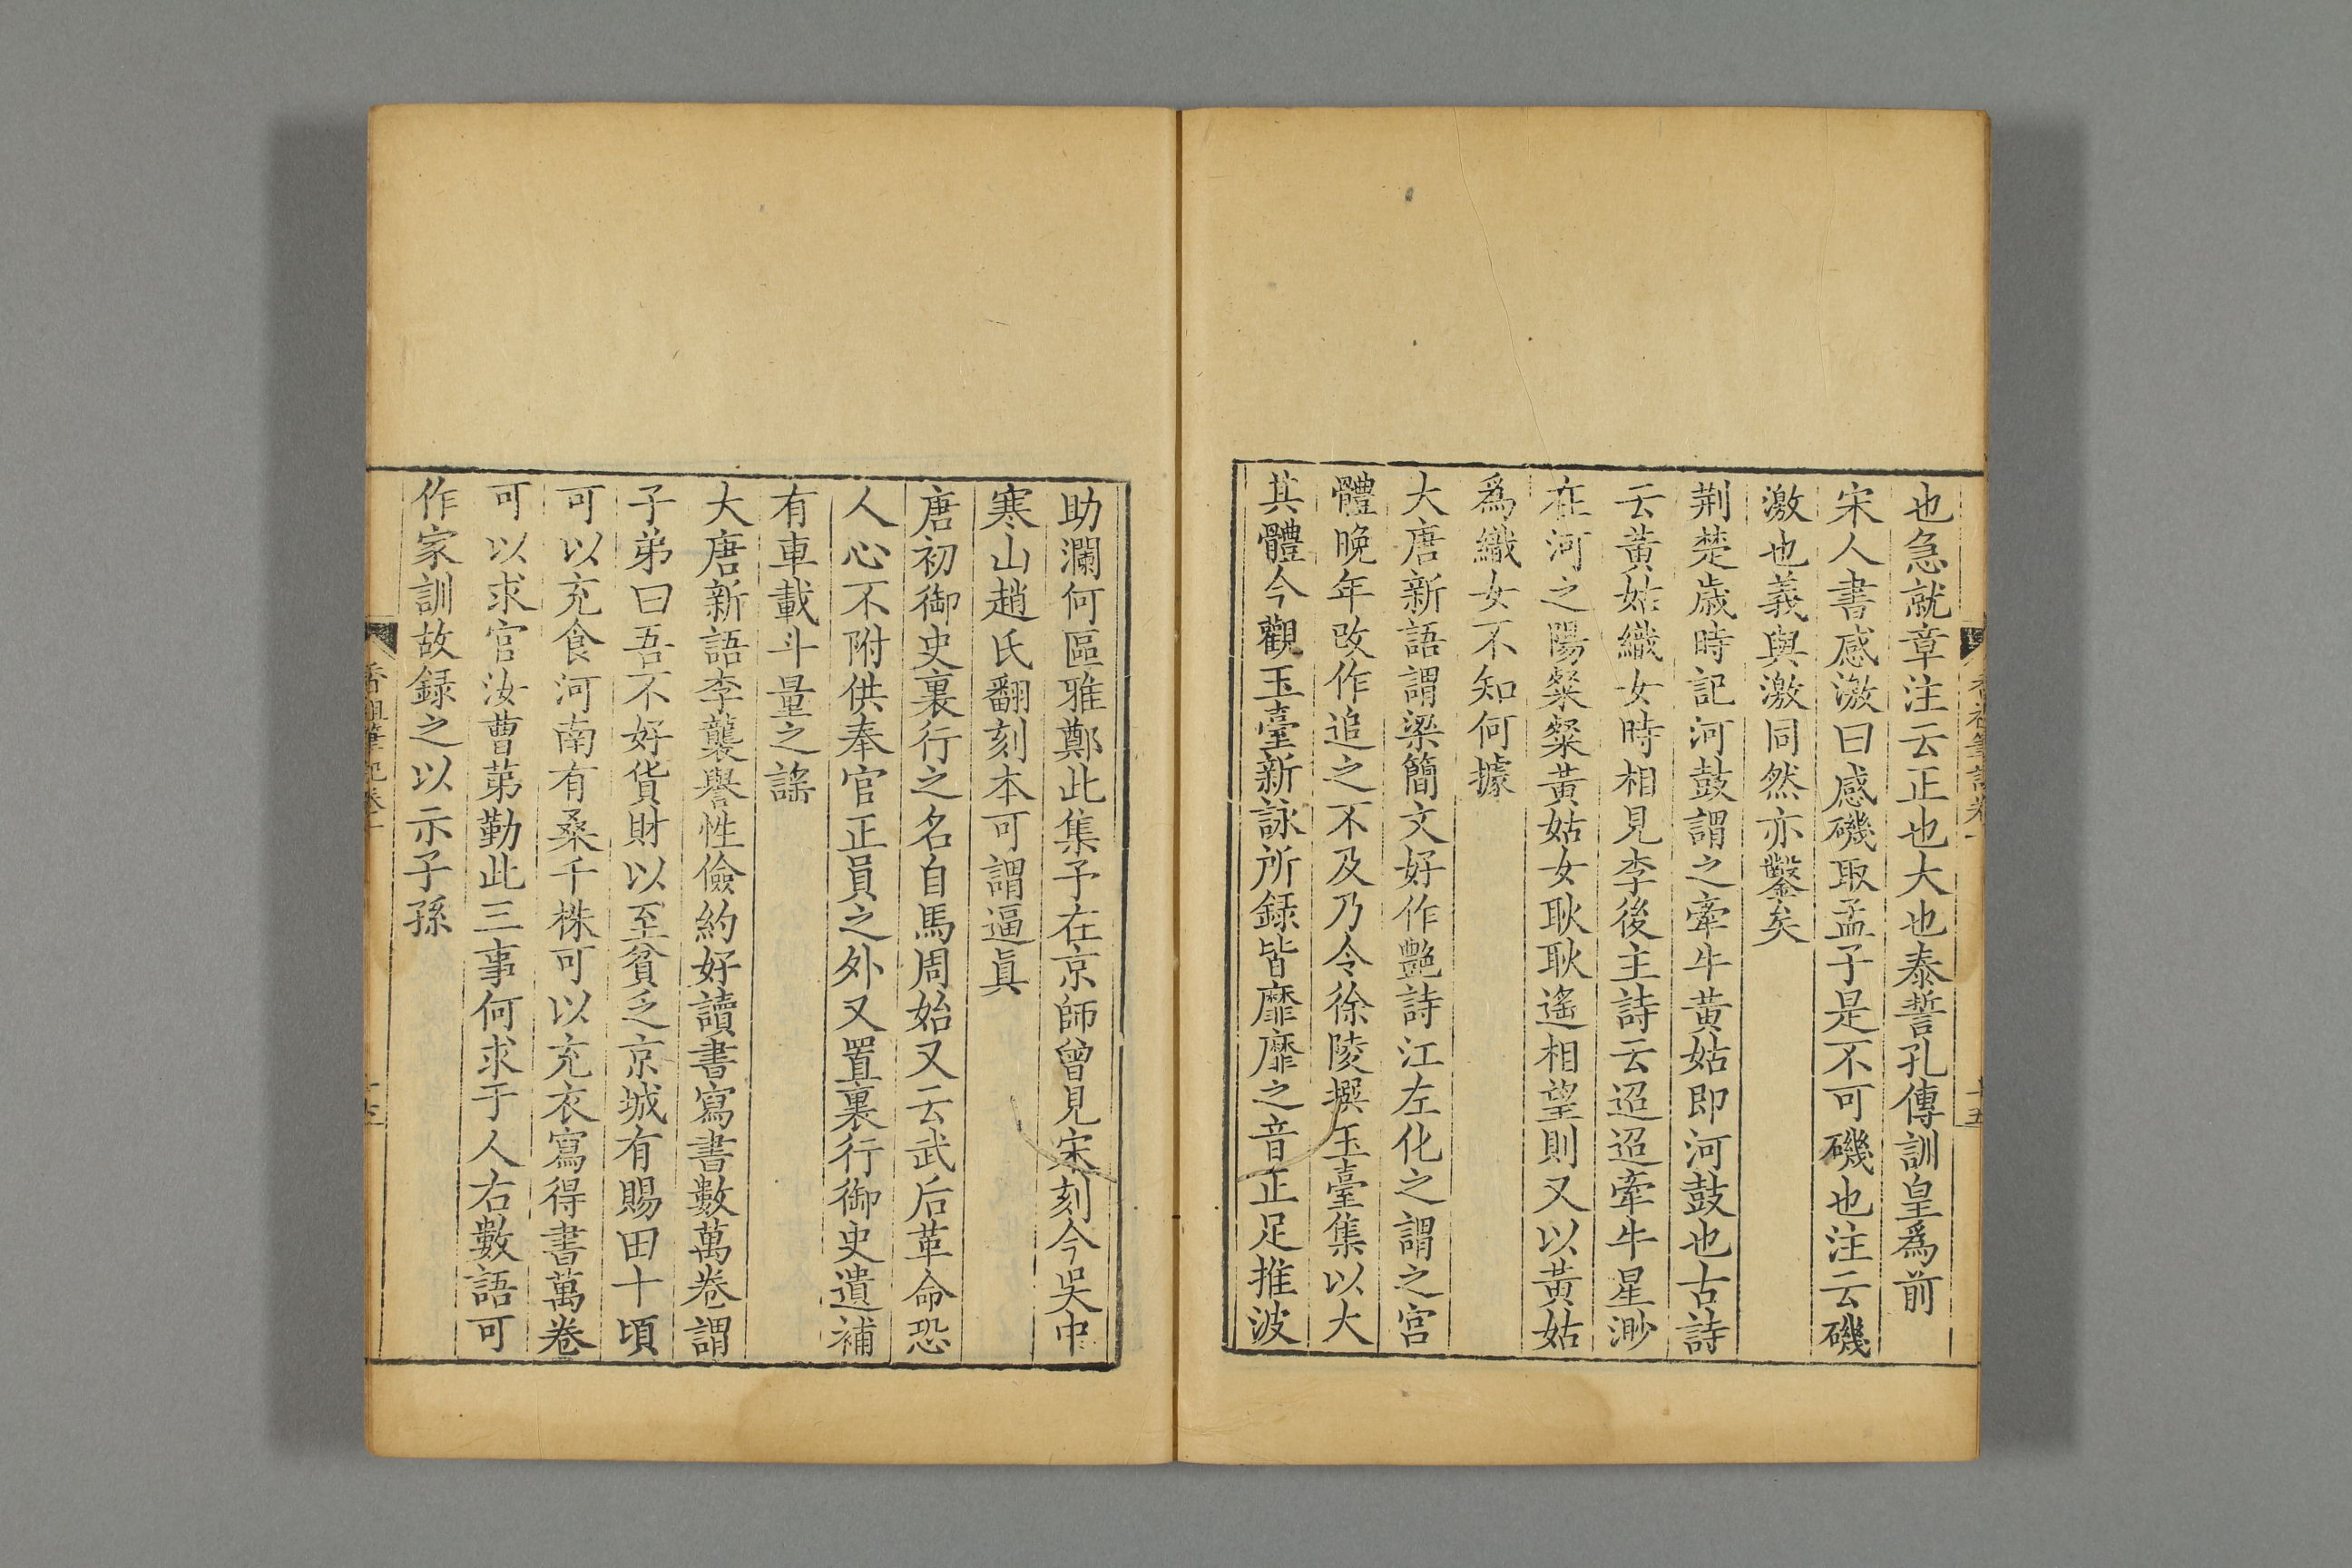 也急就章注云正也大也泰誓孔傳訓皇爲前
宋人書感激曰感磯取孟子是不可磯也注云磯
激也義與激同然亦鑿矣
荆楚歳時記河鼓謂之牽牛黄姑即河鼓也古詩
云黄姑織女時相見李後主詩云迢迢牽牛星渺
在河之陽粲粲黄姑女耿耿遙相望則又以黄姑
爲織女不知何據
大唐新語謂梁簡文好作艷詩江左化之謂之宫
體晚年改作追之不及乃令徐陵撰玉臺集以大
其體今觀玉臺新詠所録皆靡靡之音正足推波
助瀾何區雅鄭此集予在京師曾見宋刻今吳中
寒山趙氏翻刻本可謂逼眞
唐初御史裏行之名自馬周始又云武后革命恐
人心不附供奉官正員之外又置裏行御史遺補
有車載斗量之謡
大唐新語李襲譽性儉約好讀書寫書數萬卷謂
子弟曰吾不好貨財以至貧乏京城有賜田十頃
可以充食河南有桑千株可以充衣寫得書萬卷
可以求官汝曹苐勤此三事何求于人右數語可
作家訓故録之以示子孫
香祖筆記卷